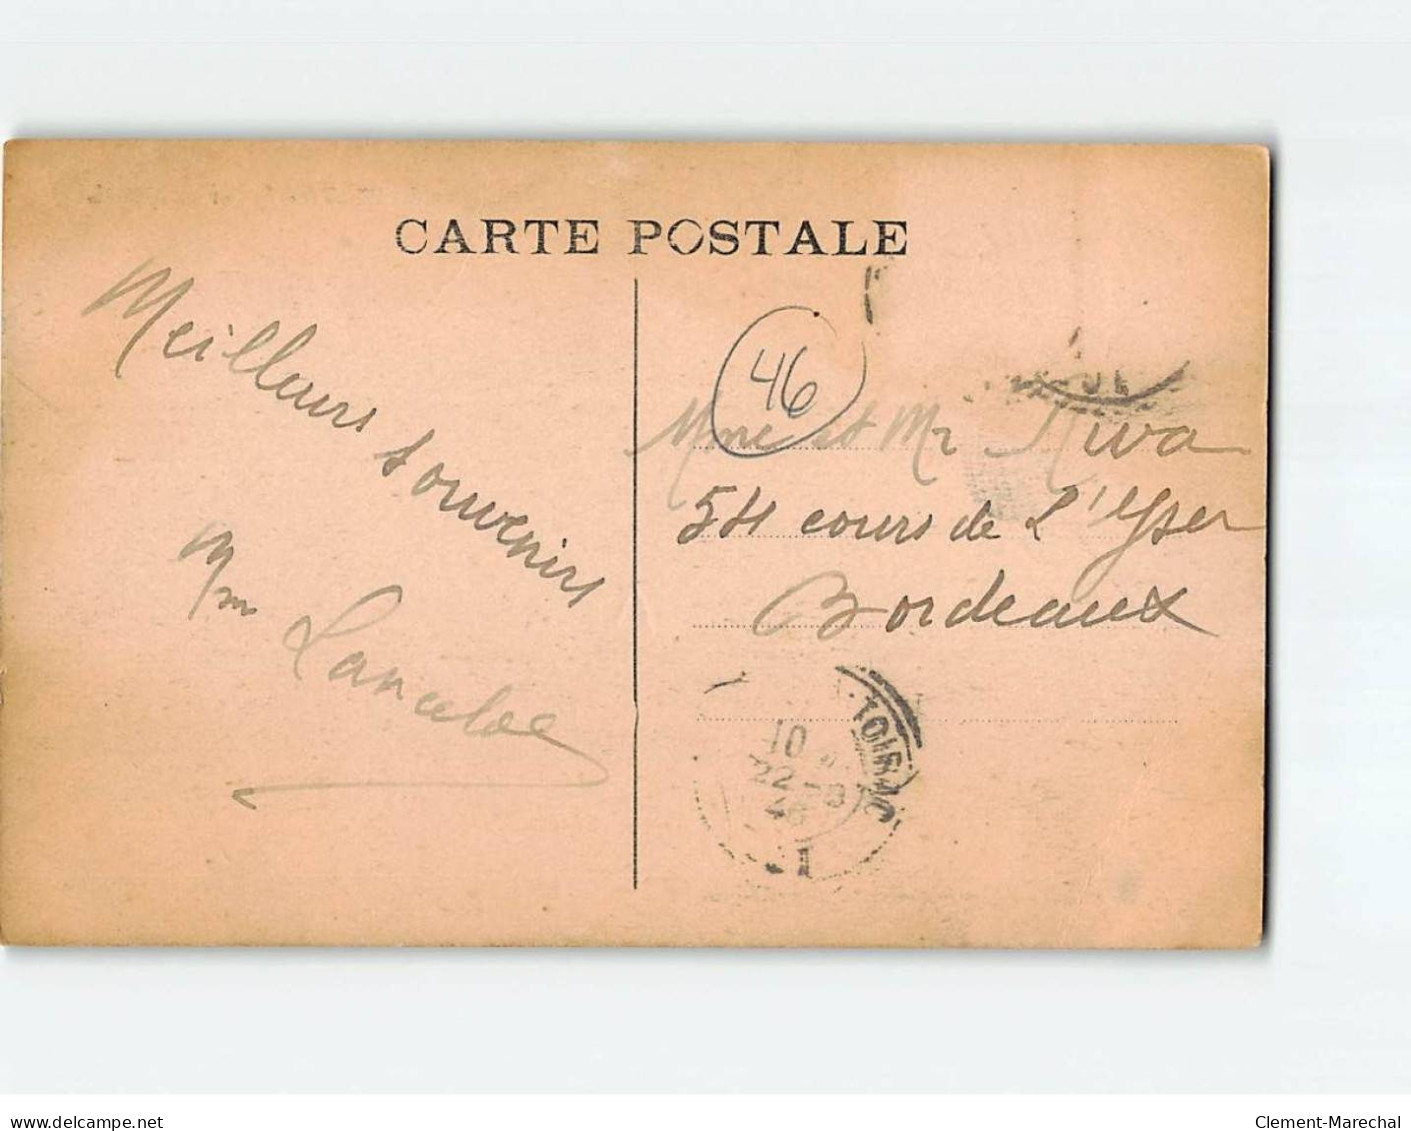 CARTE POSTALE
Meilleurs souvenirs
Mm
46
Mme et Mr Riva
54 cours de L'Yser
Bordeaux
TOIRAC
10
22-8
46
delcampe.net
Clement-Marechal